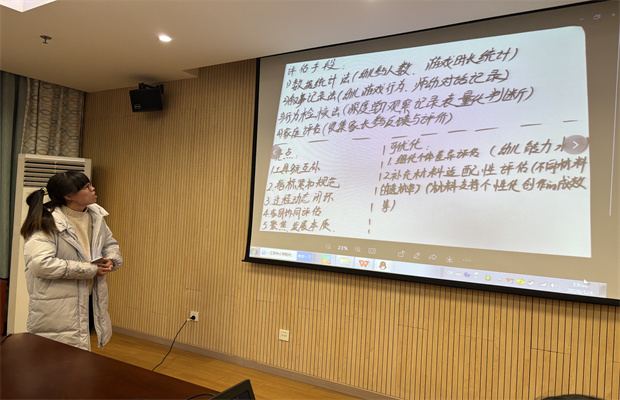 评估手段:
1)数据统计法(幼儿人数、游戏时长统计)
2)叙事记录法(幼儿游戏行为、师幼对话记录)
3)行为检核法(深度学习观察记录表量化判断)
4)家庭评估(收集家长的反馈与评价)
亮点:
1.工具多元互补
2.指标聚和规范
3.过程动态闭环
4.多方协同评估
5.聚焦发展本质.
可优化:
1.细化个体差异评估(幼儿能力水
2.补充材料适配性评估(不同材料
使用效率)(材料支持个性化创作的成效
等)
23%